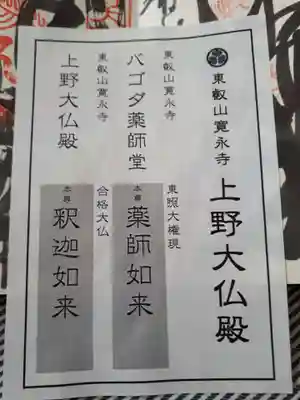 東叡山寛永寺
上野大仏殿
東照大権現
本尊 薬師如来
東叡山寛永寺
パゴダ薬師堂
合格大仏
本尊 釈迦如来
東叡山寛永寺
上野大仏殿